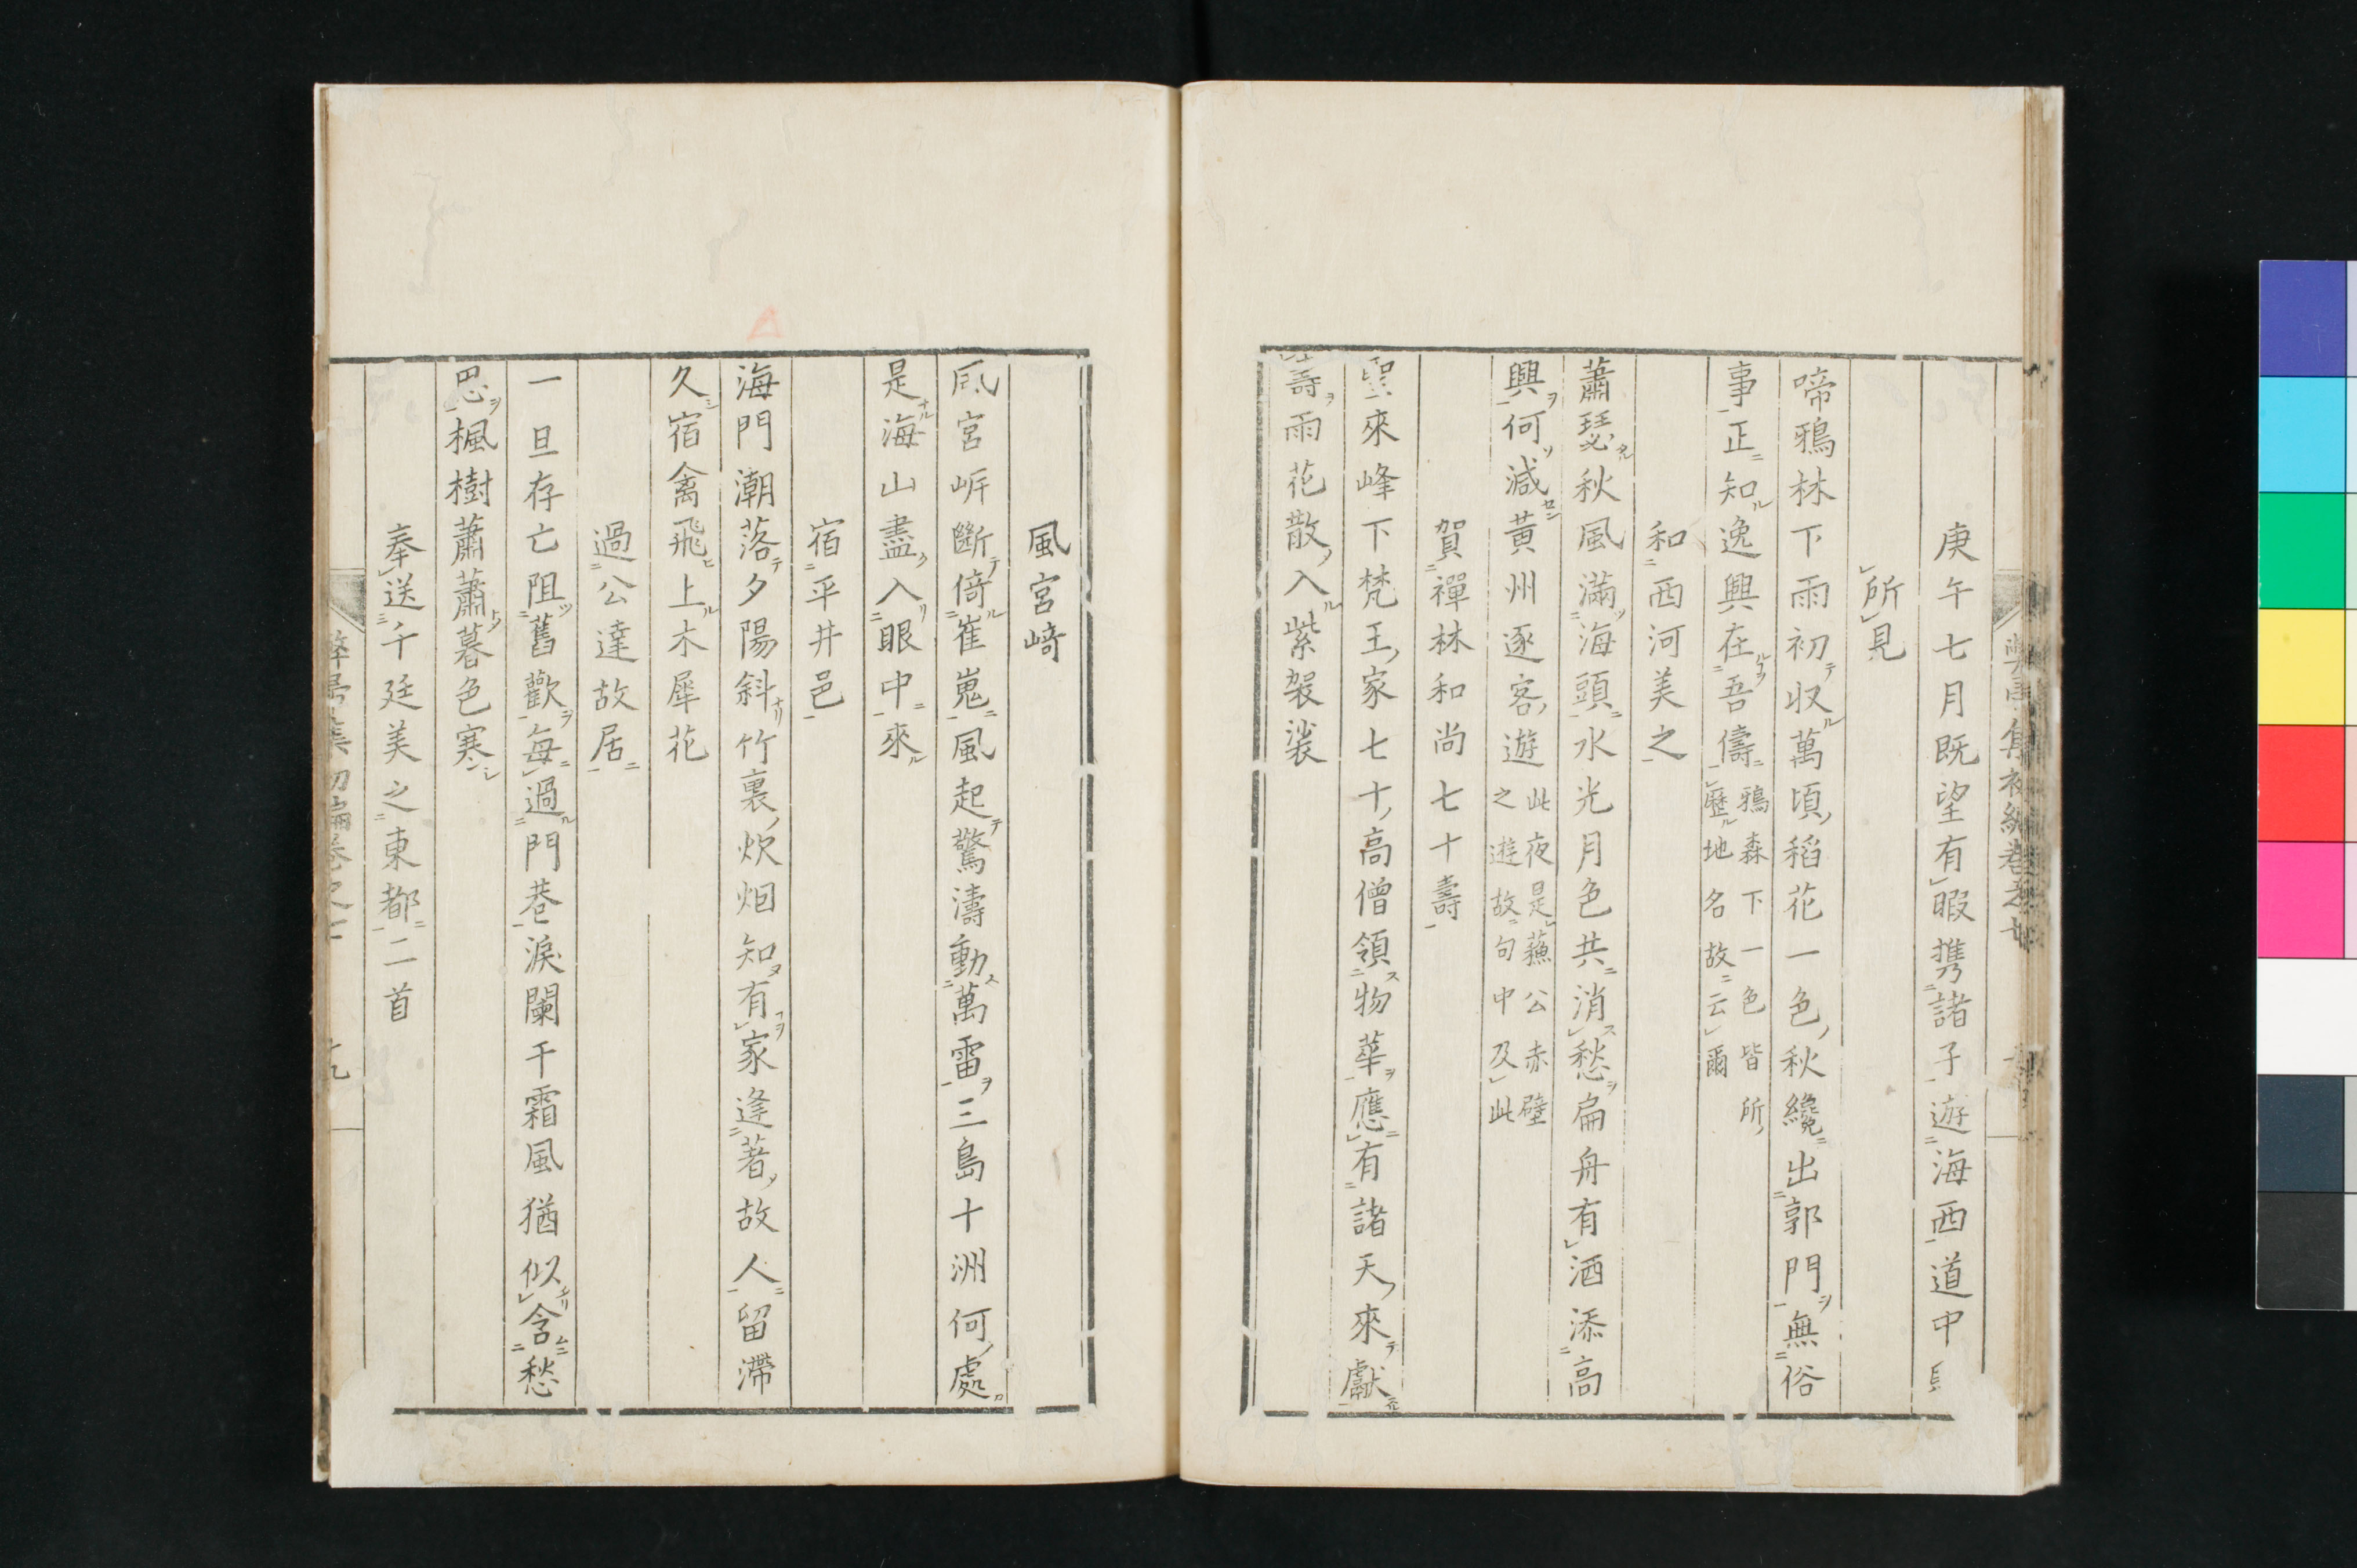 庚午七月既望有暇携諸子遊海西道中
所見
啼鴉林下雨初收萬頃稻花一色秋纔出郭門無俗
事正知逸興在吾儔鴉森下一色皆所
歷地名故云爾
和西河美之
蕭瑟秋風滿海頭水光月色共消愁扁舟有酒添高
興何減黃州逐客遊此夜是蘓公赤壁
之遊故句中及此
賀禪林和尚七十壽
來峰下梵王家七十高僧領物華應有諸天來獻
壽雨花散入紫袈裟
風宮崎
風宮岍斷倚崔嵬風起驚濤動萬雷三島十洲何處
是海山盡入眼中來
宿平井邑
海門潮落夕陽斜竹裏炊烟知有家逢著故人留滯
久宿禽飛上木犀花
過公達故居
一旦存亡阻舊歡每過門巷淚闌干霜風猶似含愁
思楓樹蕭蕭暮色寒
奉送千廷美之東都二首